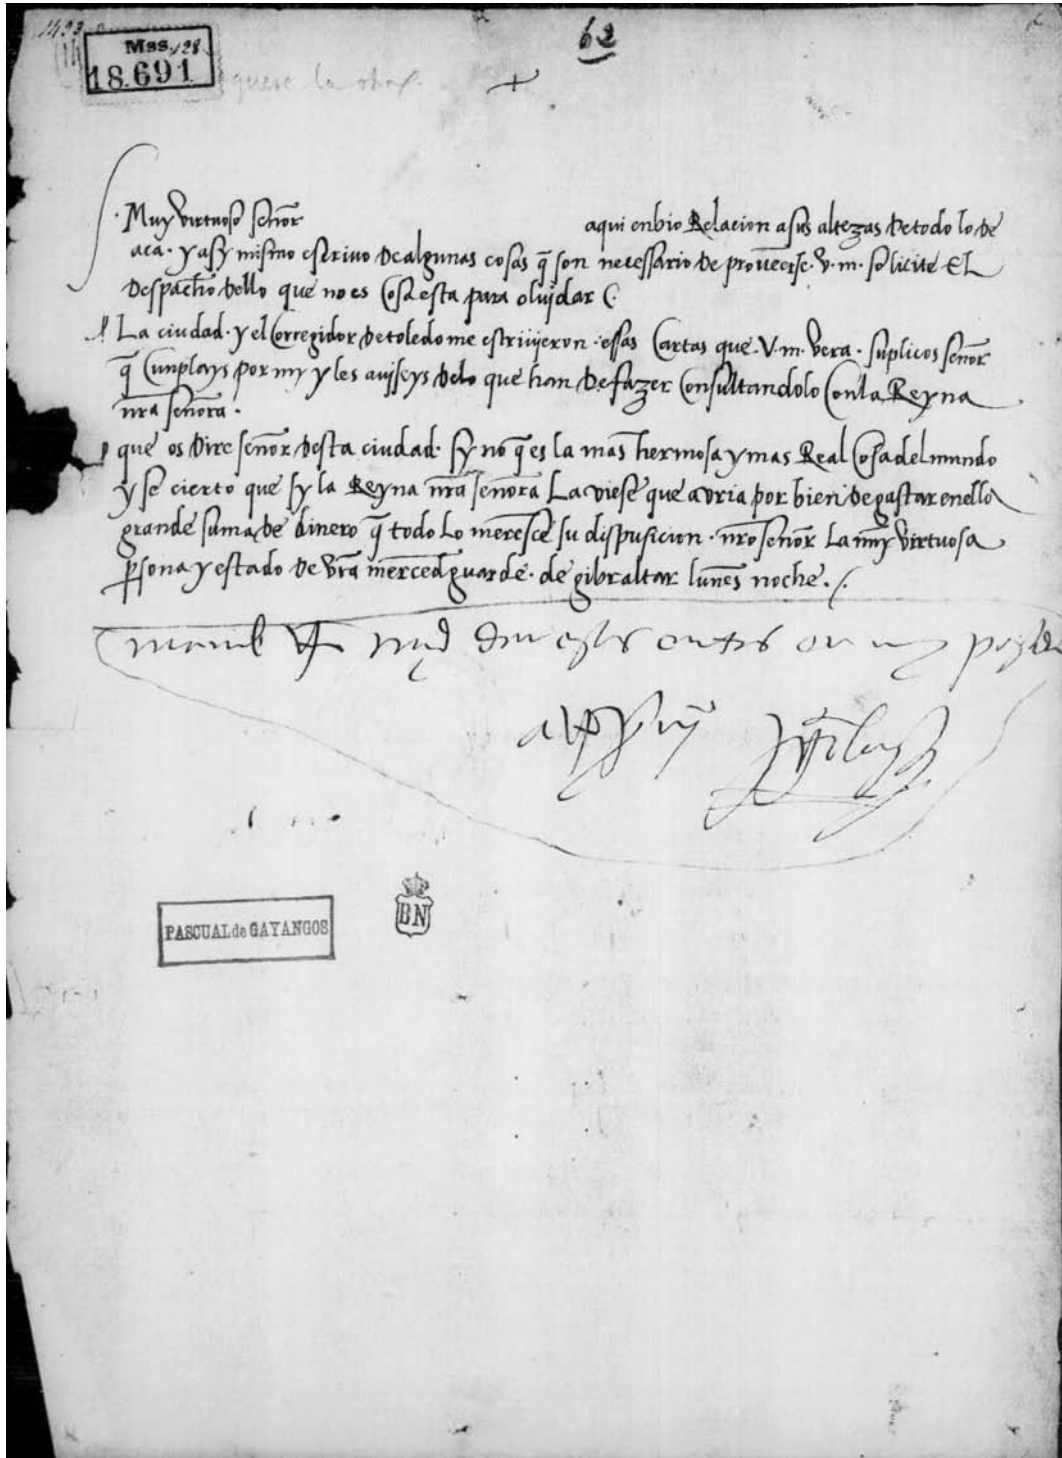 62
Mss. 128
18.691
quere la otra
+
Muy virtuoso señor aqui enbio Relacion a sus altezas de todo lo de
aca. y asy mismo escrivo de algunas cosas q̃ son necessario de proveerse. v. m. solicite EL
despacho dello que no es Cosa esta para olvidar
La ciudad. y el Corregidor de toledo me escriuieron. essas Cartas que. V. m. vera. suplicos señor
q̃ Cunplays por my y les auiseys delo que han de fazer Consultandolo Conla Reyna
nr̃a señora.
que os dire señor desta ciudad. sy no q̃ es la mas hermosa y mas Real Cosa del mundo
y se cierto que sy la Reyna nr̃a señora La viese que avria por bien de gastar en ello
grande suma de dinero q̃ todo Lo meresce su dispusicion. nr̃o señor La muy virtuosa
p̱sona y estado de vr̃a merced guarde. de gibraltar lunes noche.
PASCUAL de GAYANGOS
BN